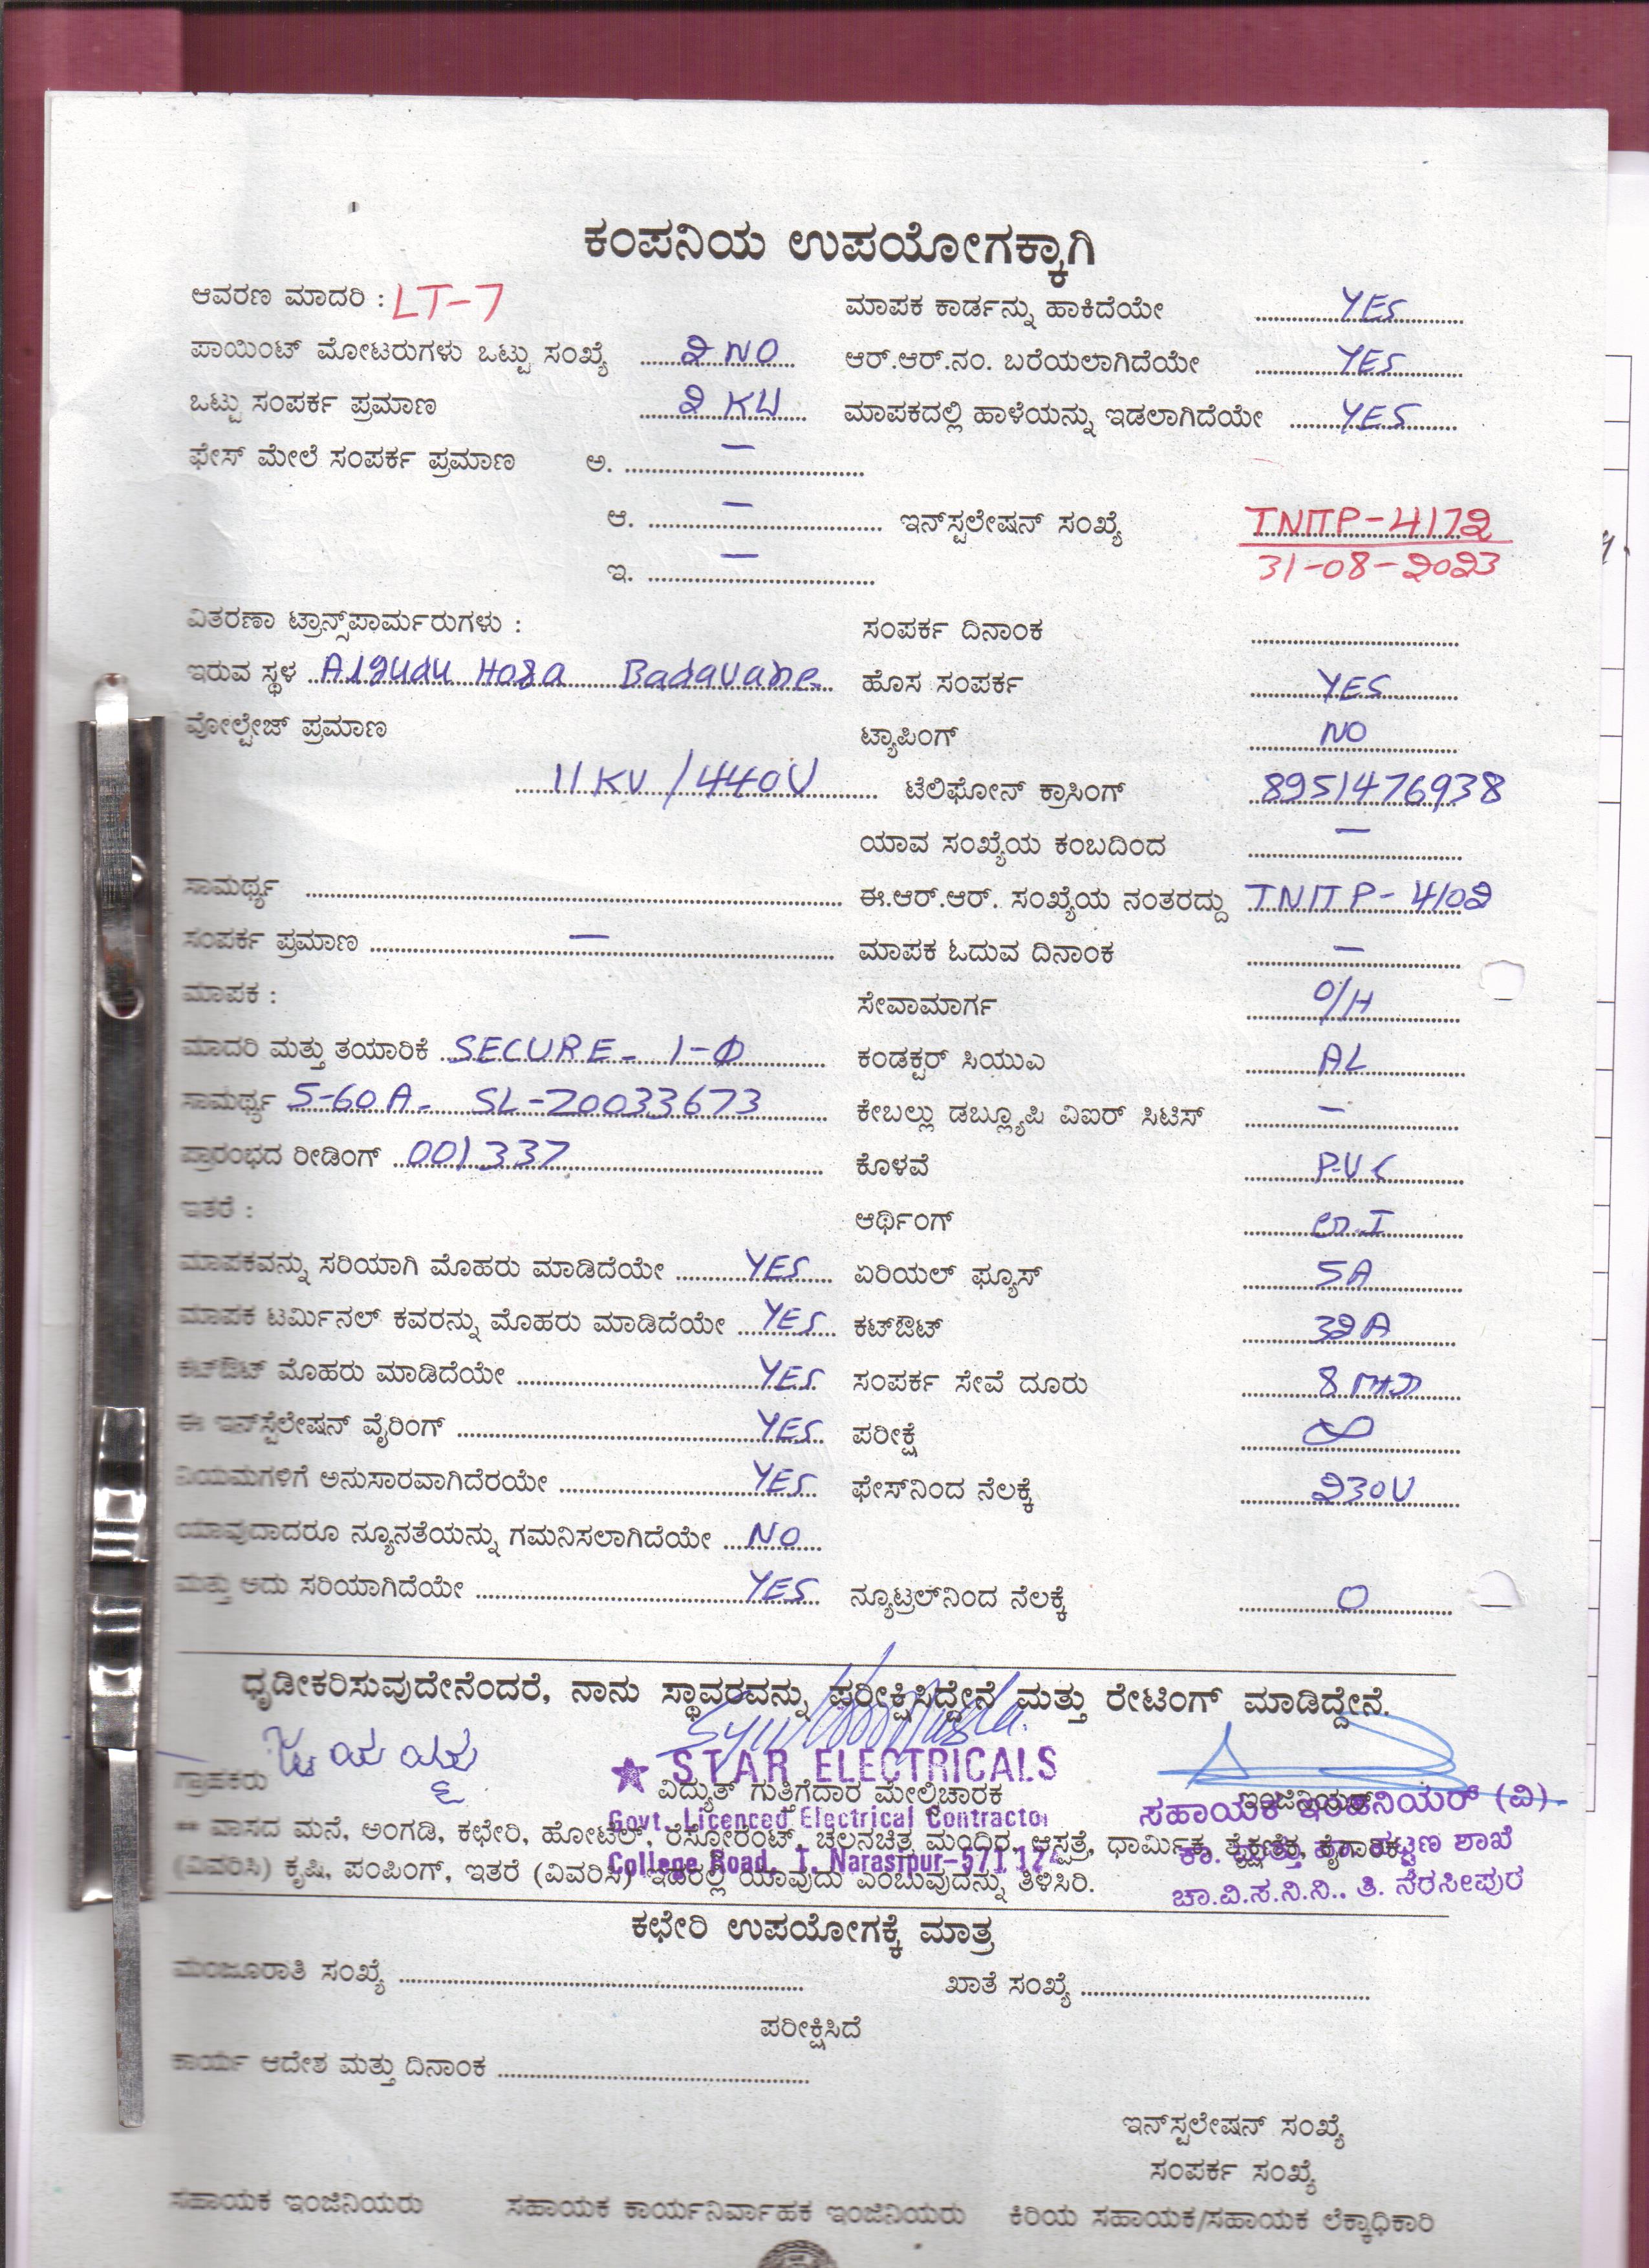 ಕಂಪನಿಯ ಉಪಯೋಗಕ್ಕಾಗಿ
ಆವರಣ ಮಾದರಿ : LT-7 ಮಾಪಕ ಕಾರ್ಡನ್ನು ಹಾಕಿದೆಯೇ YES
ಪಾಯಿಂಟ್ ಮೋಟರುಗಳು ಒಟ್ಟು ಸಂಖ್ಯೆ 2 NO ಆರ್.ಆರ್.ನಂ. ಬರೆಯಲಾಗಿದೆಯೇ YES
ಒಟ್ಟು ಸಂಪರ್ಕ ಪ್ರಮಾಣ 2 KW ಮಾಪಕದಲ್ಲಿ ಹಾಳೆಯನ್ನು ಇಡಲಾಗಿದೆಯೇ YES
ಫೇಸ್ ಮೇಲೆ ಸಂಪರ್ಕ ಪ್ರಮಾಣ ಅ. —
ಆ. — ಇನ್‌ಸ್ಟಲೇಷನ್ ಸಂಖ್ಯೆ TNTTP-4172
ಇ. — 31-08-2023
ವಿತರಣಾ ಟ್ರಾನ್ಸ್‌ಪಾರ್ಮರುಗಳು : ಸಂಪರ್ಕ ದಿನಾಂಕ
ಇರುವ ಸ್ಥಳ Alagudu Hosa Badavane ಹೊಸ ಸಂಪರ್ಕ YES
ವೋಲ್ಟೇಜ್ ಪ್ರಮಾಣ ಟ್ಯಾಪಿಂಗ್ NO
11 KV / 440V ಟೆಲಿಫೋನ್ ಕ್ರಾಸಿಂಗ್ 8951476938
ಯಾವ ಸಂಖ್ಯೆಯ ಕಂಬದಿಂದ —
ಸಾಮರ್ಥ್ಯ ಈ.ಆರ್.ಆರ್. ಸಂಖ್ಯೆಯ ನಂತರದ್ದು TNTTP-4102
ಸಂಪರ್ಕ ಪ್ರಮಾಣ — ಮಾಪಕ ಓದುವ ದಿನಾಂಕ —
ಮಾಪಕ : ಸೇವಾಮಾರ್ಗ O/H
ಮಾದರಿ ಮತ್ತು ತಯಾರಿಕೆ SECURE- 1-Φ ಕಂಡಕ್ಟರ್ ಸಿಯುಎ AL
ಸಾಮರ್ಥ್ಯ 5-60A- SL-20033673 ಕೇಬಲ್ಲು ಡಬ್ಲ್ಯೂಪಿ ವಿಐರ್ ಸಿಟಿಸ್ —
ಪ್ರಾರಂಭದ ರೀಡಿಂಗ್ 001337 ಕೊಳವೆ P.V.C
ಇತರೆ : ಆರ್ಥಿಂಗ್ G.I
ಮಾಪಕವನ್ನು ಸರಿಯಾಗಿ ಮೊಹರು ಮಾಡಿದೆಯೇ YES ಏರಿಯಲ್ ಫ್ಯೂಸ್ 5A
ಮಾಪಕ ಟರ್ಮಿನಲ್ ಕವರನ್ನು ಮೊಹರು ಮಾಡಿದೆಯೇ YES ಕಟ್‌ಔಟ್ 32A
ಕಟ್‌ಔಟ್ ಮೊಹರು ಮಾಡಿದೆಯೇ YES ಸಂಪರ್ಕ ಸೇವೆ ದೂರು 8
ಈ ಇನ್‌ಸ್ಟೆಲೇಷನ್ ವೈರಿಂಗ್ YES ಪರೀಕ್ಷೆ ∞
ನಿಯಮಗಳಿಗೆ ಅನುಸಾರವಾಗಿದೆರಯೇ YES ಫೇಸ್‌ನಿಂದ ನೆಲಕ್ಕೆ 230V
ಯಾವುದಾದರೂ ನ್ಯೂನತೆಯನ್ನು ಗಮನಿಸಲಾಗಿದೆಯೇ NO
ಮತ್ತು ಅದು ಸರಿಯಾಗಿದೆಯೇ YES ನ್ಯೂಟ್ರಲ್‌ನಿಂದ ನೆಲಕ್ಕೆ 0
ಧೃಡೀಕರಿಸುವುದೇನೆಂದರೆ, ನಾನು ಸ್ಥಾವರವನ್ನು ಪರೀಕ್ಷಿಸಿದ್ದೇನೆ ಮತ್ತು ರೇಟಿಂಗ್ ಮಾಡಿದ್ದೇನೆ.
★ STAR ELECTRICALS
ಗ್ರಾಹಕರು ವಿದ್ಯುತ್ ಗುತ್ತಿಗೆದಾರ ಮೇಲ್ವಿಚಾರಕ ಇಂಜಿನಿಯರ್
Govt. Licenced Electrical Contractor ಸಹಾಯಕ ಇಂಜಿನಿಯರ್ (ವಿ)
** ವಾಸದ ಮನೆ, ಅಂಗಡಿ, ಕಛೇರಿ, ಹೋಟೆಲ್, ರೆಸ್ಟೋರೆಂಟ್, ಚಲನಚಿತ್ರ ಮಂದಿರ, ಆಸ್ಪತ್ರೆ, ಧಾರ್ಮಿಕ, ಶೈಕ್ಷಣಿಕ, ಕೈಗಾರಿಕ
College Road, T. Narasipur-571 124 ಪಟ್ಟಣ ಶಾಖೆ
(ವಿವರಿಸಿ) ಕೃಷಿ, ಪಂಪಿಂಗ್, ಇತರೆ (ವಿವರಿಸಿ) ಇದರಲ್ಲಿ ಯಾವುದು ಎಂಬುವುದನ್ನು ತಿಳಿಸಿರಿ.
ಚಾ.ವಿ.ಸ.ನಿ.ನಿ., ತಿ. ನರಸೀಪುರ
ಕಛೇರಿ ಉಪಯೋಗಕ್ಕೆ ಮಾತ್ರ
ಮಂಜೂರಾತಿ ಸಂಖ್ಯೆ ಖಾತೆ ಸಂಖ್ಯೆ
ಪರೀಕ್ಷಿಸಿದೆ
ಕಾರ್ಯ ಆದೇಶ ಮತ್ತು ದಿನಾಂಕ
ಇನ್‌ಸ್ಟಲೇಷನ್ ಸಂಖ್ಯೆ
ಸಂಪರ್ಕ ಸಂಖ್ಯೆ
ಸಹಾಯಕ ಇಂಜಿನಿಯರು ಸಹಾಯಕ ಕಾರ್ಯನಿರ್ವಾಹಕ ಇಂಜಿನಿಯರು ಕಿರಿಯ ಸಹಾಯಕ/ಸಹಾಯಕ ಲೆಕ್ಕಾಧಿಕಾರಿ